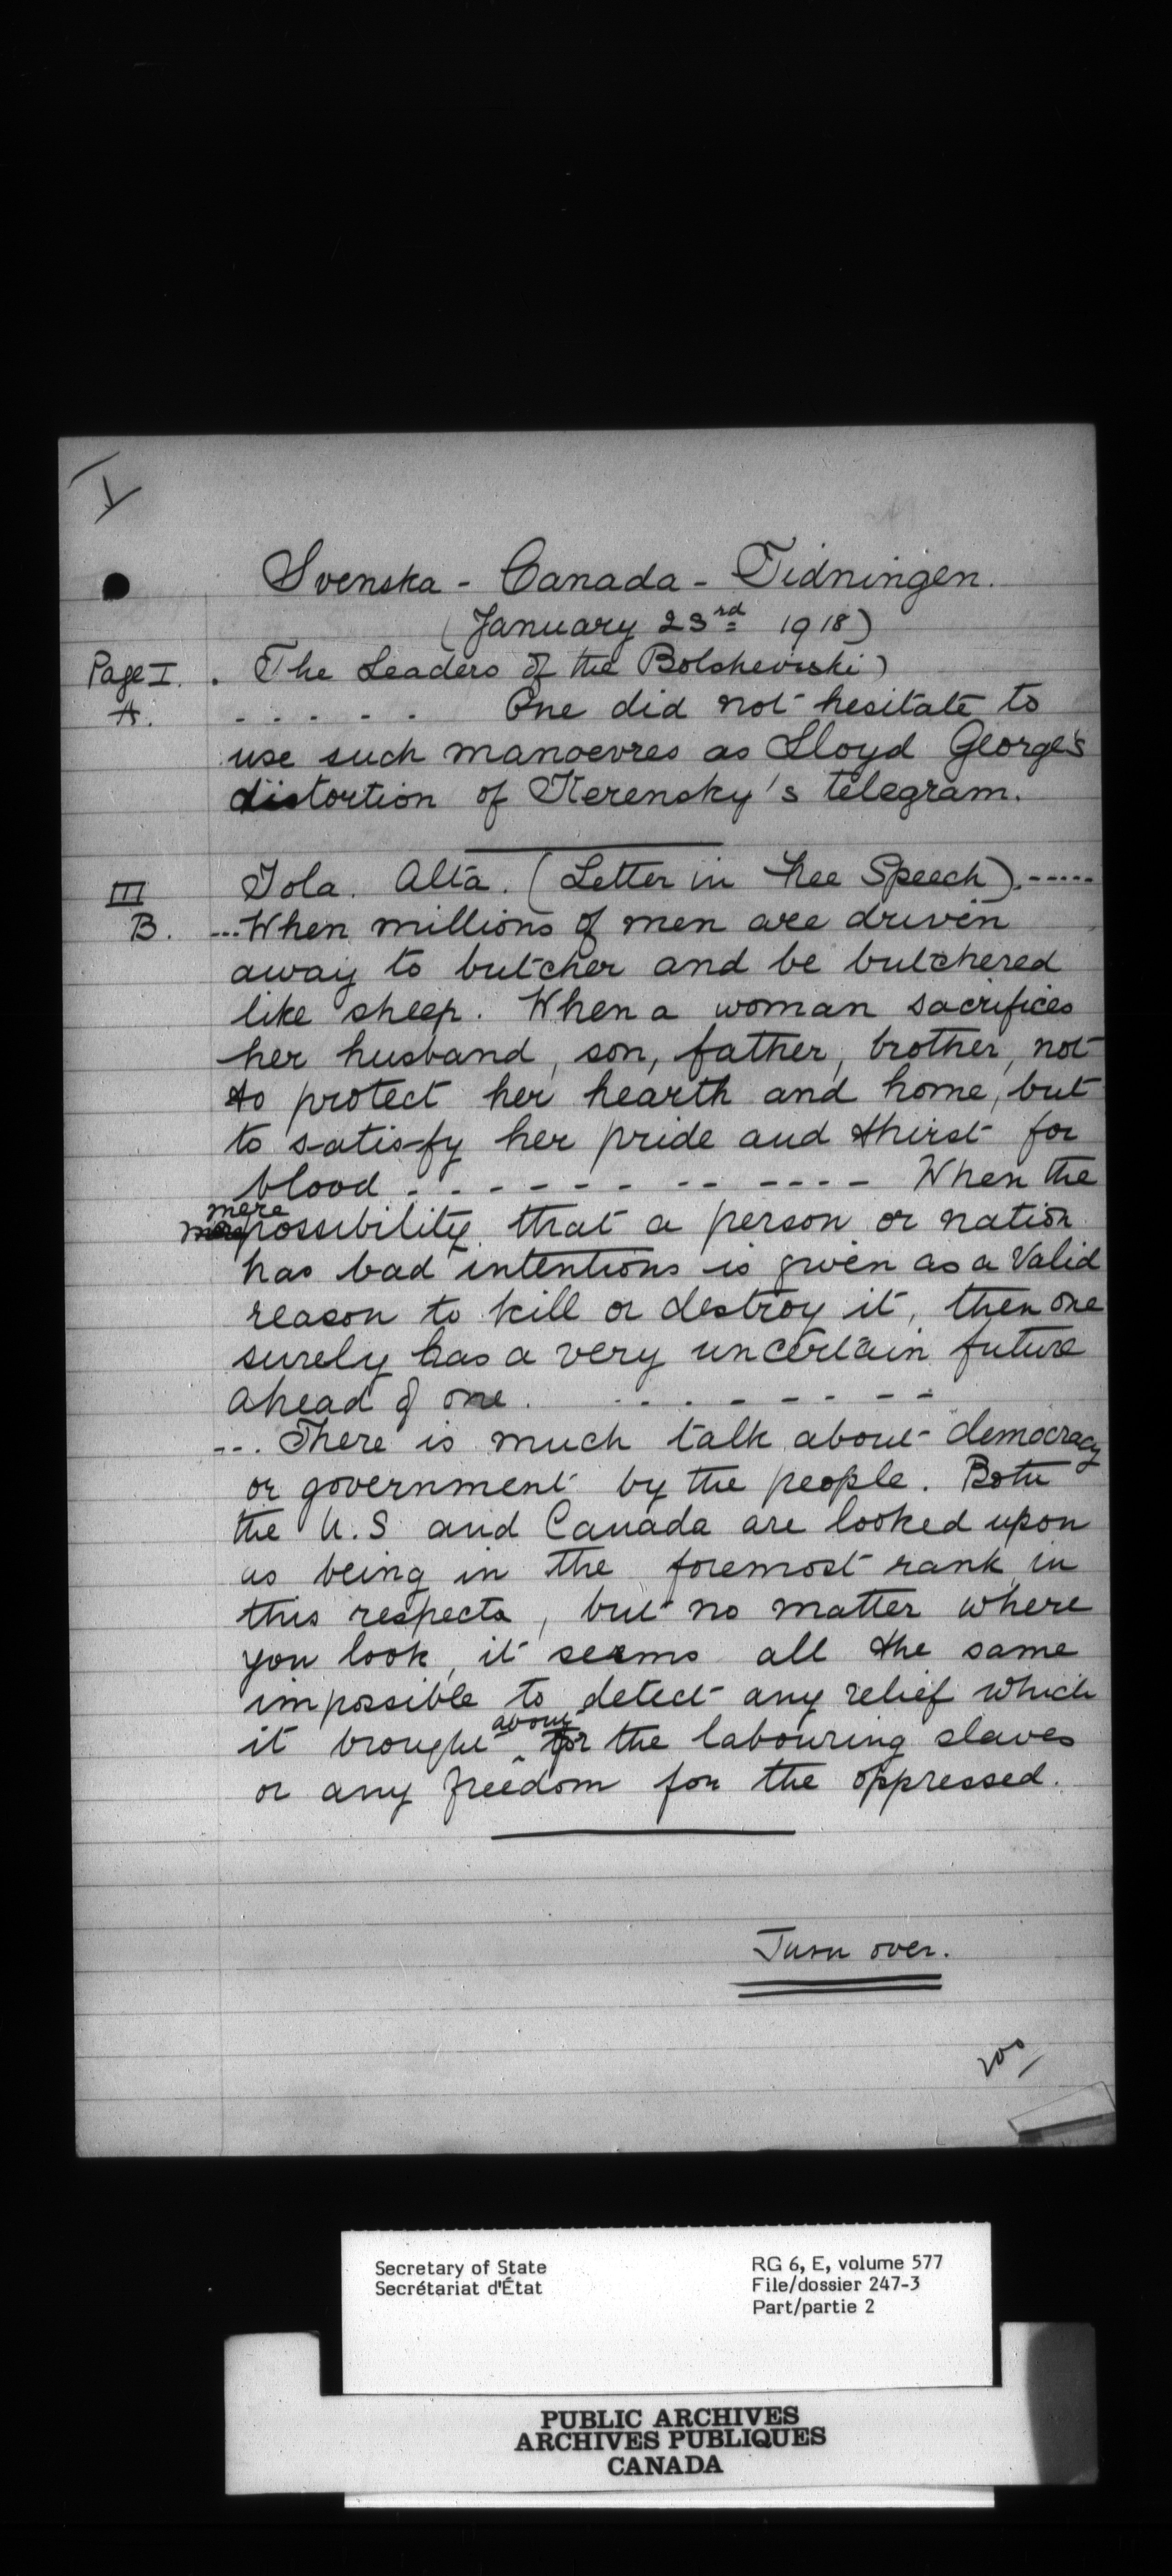 I
Svenska - Canada - Tidningen.
(January 23rd 1918)
Page I. . The Leaders of the Bolshevski)
A. - - - - - One did not hesitate to
use such manoevres as Lloyd George's
distortion of Kerensky's telegram.
III Iola. Alta. (Letter in Free Speech).-----
B. ...When millions of men are driven
away to butcher and be butchered
like sheep. When a woman sacrifices
her husband, son, father, brother, not
to protect her hearth and home, but
to satisfy her pride and thirst for
blood - - - - - - - - - - - - When the
mere
possibility that a person or nation
has bad intentions is given as a Valid
reason to kill or destroy it, then one
surely has a very uncertain future
ahead of one. - - - - - - - -
--. There is much talk about democracy
or government by the people. Both
the U.S and Canada are looked upon
as being in the foremost rank in
this respects, but no matter where
you look, it seems all the same
impossible to detect any relief which
it brought about for the labouring slaves
or any freedom for the oppressed.
Turn over.
200
Secretary of State
Secrétariat d'État
RG 6, E, volume 577
File/dossier 247-3
Part/partie 2
PUBLIC ARCHIVES
ARCHIVES PUBLIQUES
CANADA